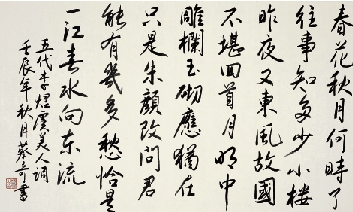 春花秋月何時了
往事知多少小樓
昨夜又東風故國
不堪回首月明中
雕欄玉砌應猶在
只是朱顏改問君
能有幾多愁恰是
一江春水向东流
五代李煜虞美人詞
壬辰年秋月蔡奇書